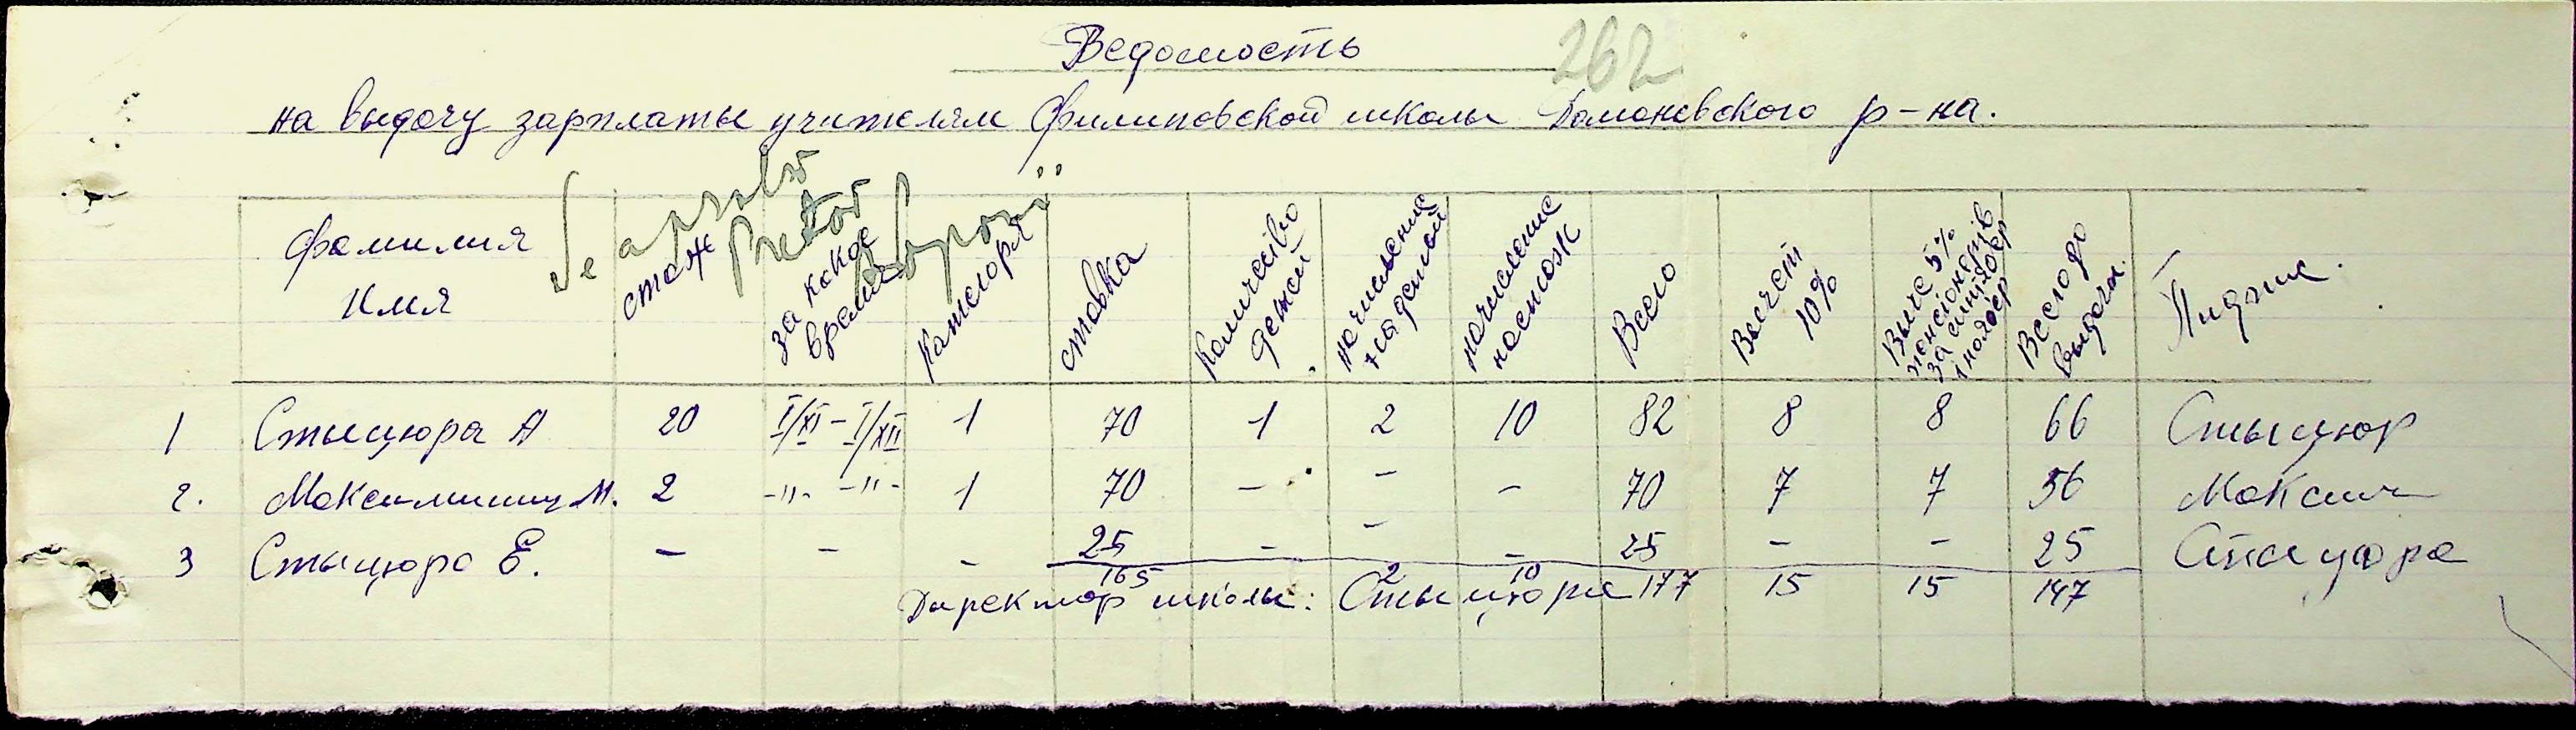 Ведомость
262
на выдачу зарплаты учителям Филиповской школы Доманевского р-на.
Se aprobă
Pretor
Фамилия Имя | стаж | за какое время | Категория | ставка | Количество детей | начисление на детей | начисление на стаж | Всего | Вычет 10% | Вычет 5% пенсіонерів за | Всего до выдачи.
1 Стыцюра А 20 I/XI – I/XII 1 70 1 2 10 82 8 8 66 Стыцюр
2. Максимишин М. 2 -"- -"- 1 70 – - – 70 7 7 56 Максим
3 Стыцюра Е. – – - 25 - - - 25 – - 25 Стыцюра
165 2 10 177 15 15 147
Директор школы: Стыцюра